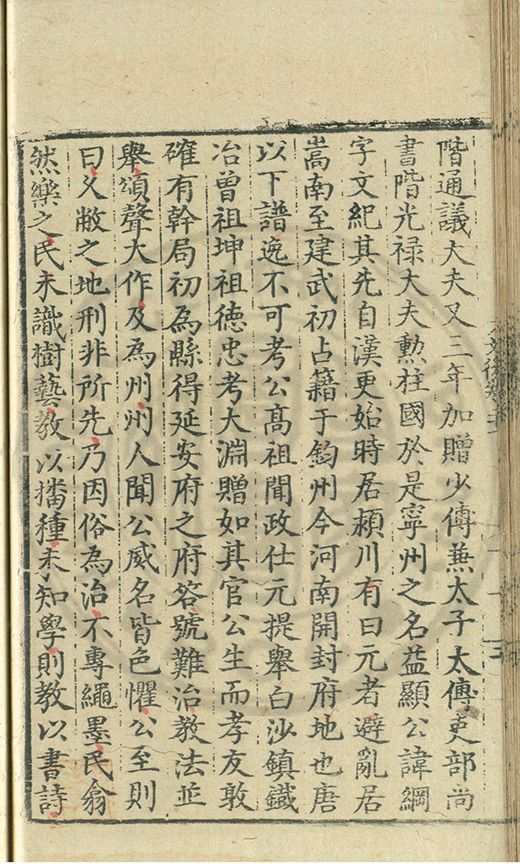 階通議大夫又三年加贈少傅兼太子太傅吏部尚
書階光禄大夫勲柱國於是寧州之名益顯公諱綱
字文紀其先自漢更始時居潁川有曰元者避亂居
嵩南至建武初占籍于鈞州今河南開封府地也唐
以下譜逸不可考公髙祖聞政仕元提舉白沙鎮鐵
冶曽祖坤祖徳忠考大淵贈如其官公生而孝友敦
確有幹局初為縣得延安府之府容號難治教法並
舉頌聲大作及為州州人聞公威名皆色懼公至則
曰久敝之地刑非所先乃因俗為治不專繩墨民翕
然樂之民未識樹藝教以播種未知學則教以書詩